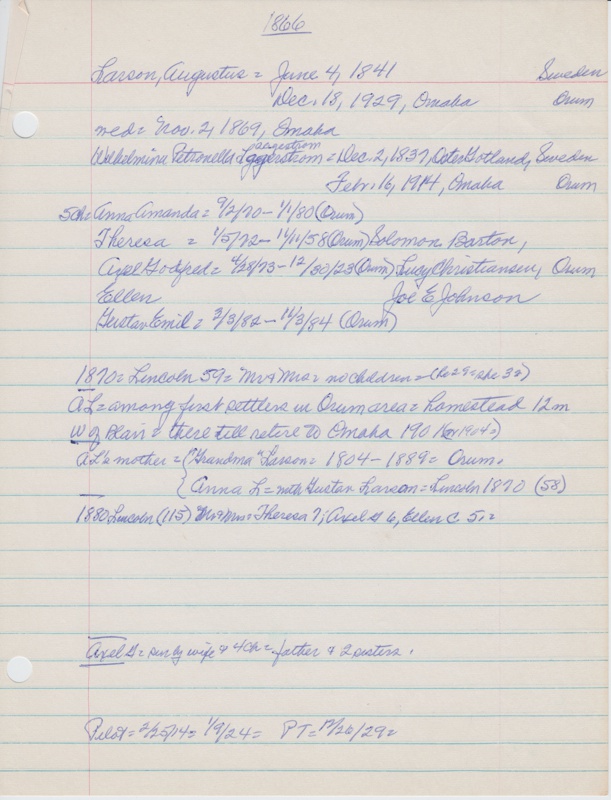 1866
Larson, Augustus = June 4, 1841 Sweden
Dec. 18, 1929, Omaha Orum
med = Nov. 2, 1869, Omaha
aagerstrom
Wilhelmina Petronella = Dec. 2, 1837, OsterGotland, Sweden
Febr. 16, 1914, Omaha Orum
5ch = Anna Amanda = 9/2/70 - 1/1/80 (Orum)
Theresa = 1/5/72 - (Orum) Solomon Barton,
Axel Godfred = 4/28/73 - 12/30/23 (Orum) Lucy Christiansen, Orum
Ellen Joe E Johnson
Gustav Emil = 3/3/82 - 11/3/84 (Orum)
1870 = Lincoln 59 = Mr & Mrs = no children = (he 29 = she 32)
AL = among first settlers in Orum area = homestead 12m
W of Blair = there till retire to Omaha 1901 (or 1904 =)
AL's mother = ("Grandma" Larson = 1804 - 1889 = Orum.
{ Anna L = with Gustav Larson = Lincoln 1870 (58)
1880 Lincoln (115) Mr & Mrs = Theresa 7; Axel G 6, Ellen C 5. =
Axel G = surv by wife & 4ch = father & 2 sisters.
Pilot = 2/25/14 = 1/9/24 = PT = /29 =